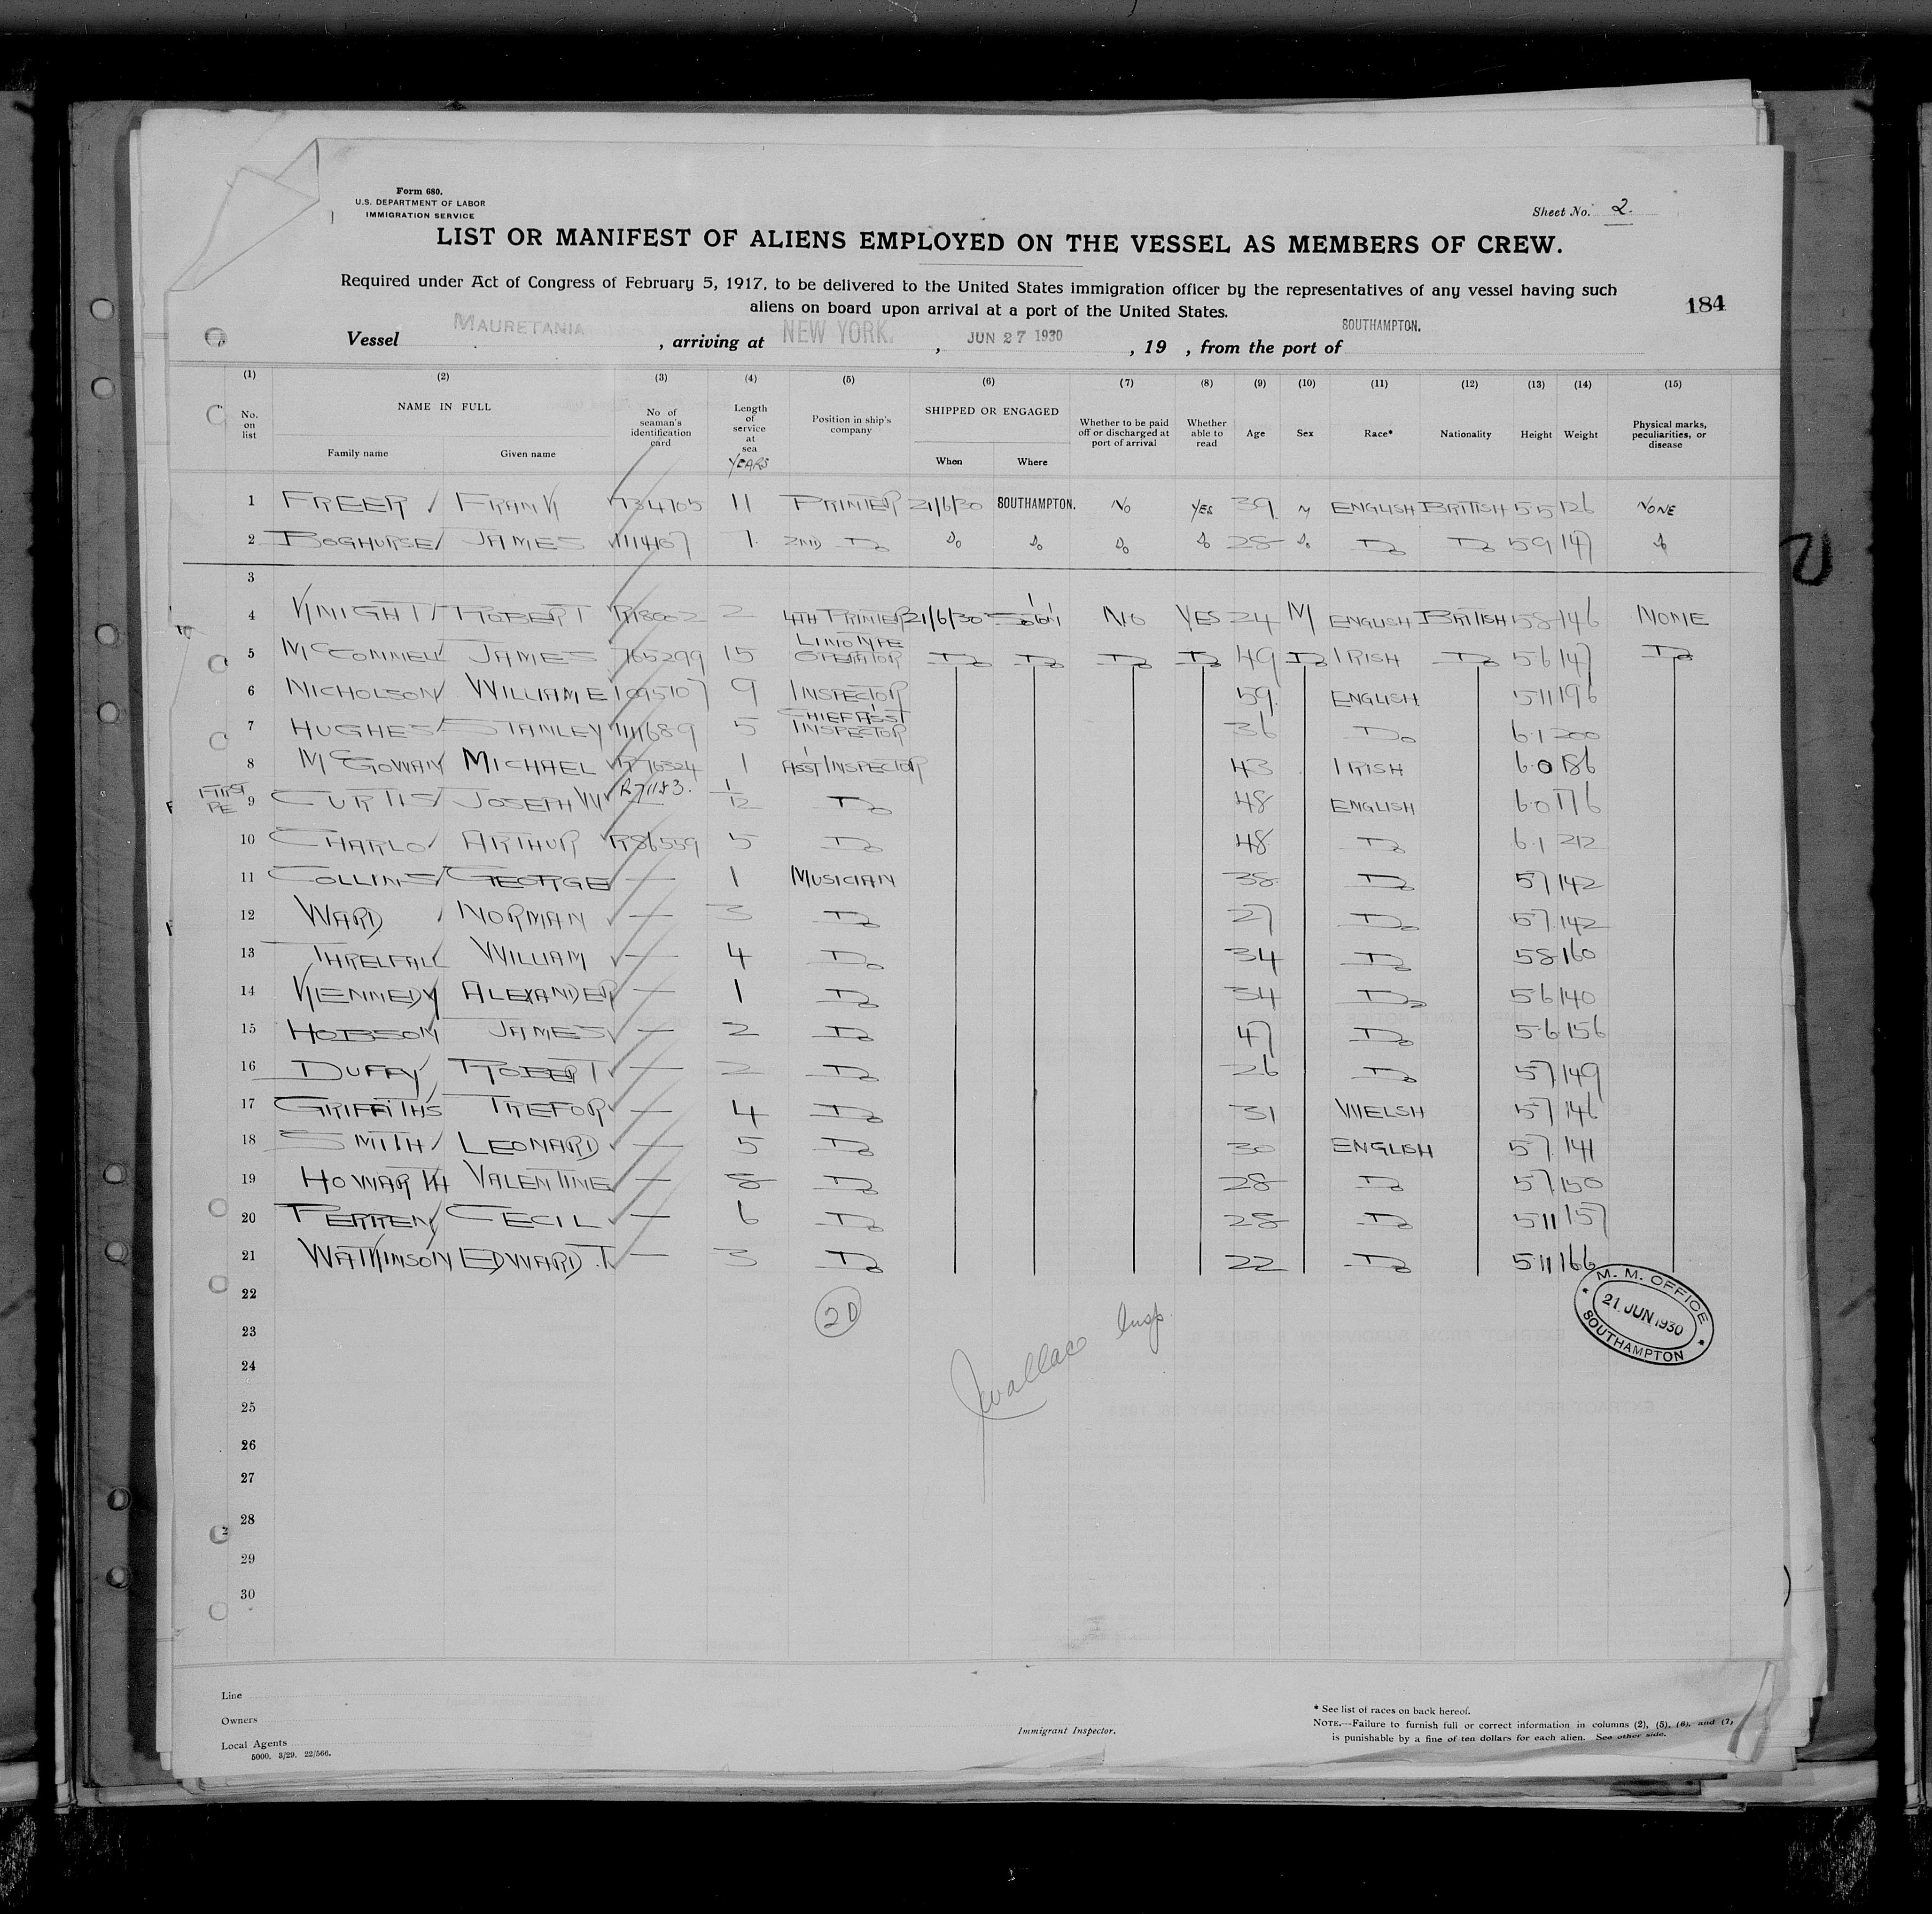 Form 680.
U.S. DEPARTMENT OF LABOR
IMMIGRATION SERVICE
Sheet No. 2.
LIST OR MANIFEST OF ALIENS EMPLOYED ON THE VESSEL AS MEMBERS OF CREW.
Required under Act of Congress of February 5, 1917, to be delivered to the United States immigration officer by the representatives of any vessel having such
aliens on board upon arrival at a port of the United States.
184
Vessel MAURETANIA, arriving at NEW YORK., JUN 27 1930, 19 , from the port of SOUTHAMPTON.
(1) (2) (3) (4) (5) (6) (7) (8) (9) (10) (11) (12) (13) (14) (15)
No. on list NAME IN FULL Family name Given name No of seaman's identification card Length of service at sea YEARS Position in ship's company SHIPPED OR ENGAGED When Where Whether to be paid off or discharged at port of arrival Whether able to read Age Sex Race* Nationality Height Weight Physical marks, peculiarities, or disease
1 FREER FRANK 734705 11 PRINTER 21/6/30 SOUTHAMPTON. NO YES 39 M ENGLISH BRITISH 5 5 126 NONE
2 BOGHURSE JAMES 1114167 1. 2ND Do Do Do Do Do 28 Do Do Do 5 9 147 Do
3
4 KNIGHT ROBERT R18002 2 4TH PRINTER 21/6/30 So'ton NO YES 24 M ENGLISH BRITISH 5 8 146 NONE
5 McCONNELL JAMES 765299 15 LINOTYPE OPERATOR Do Do Do Do 49 Do IRISH Do 5 6 147 Do
6 NICHOLSON WILLIAM E 1095107 9 INSPECTOR 59. ENGLISH. 5 11 196
7 HUGHES STANLEY 1111689 5 CHIEF ASST INSPECTOR 36 Do 6.1 200
8 McGOWAN MICHAEL R76324 1 ASST INSPECTOR 43 IRISH 6.0 186
9 CURTIS JOSEPH W R71183. 1/12 Do 48 ENGLISH 6.0 176
10 CHARLO ARTHUR R86559 5 Do 48 Do 6.1 212
11 COLLINS GEORGE — 1 MUSICIAN 38. Do 5 7 142
12 WARD NORMAN — 3 Do 27 Do 5 7. 142
13 THRELFALL WILLIAM — 4 Do 34 Do 5 8 160
14 KENNEDY ALEXANDER — 1 Do 34 Do 5 6 140
15 HOBSON JAMES — 2 Do 47 Do 5.6 156
16 DUFFY ROBERT — 2 Do 26 Do 5 7. 149
17 GRIFFITHS TREFOR — 4 Do 31 WELSH 5 7 146
18 SMITH LEONARD — 5 Do 30 ENGLISH 5 7. 141
19 HOWARTH VALENTINE — 8 Do 28 Do 5 7. 150
20 PERREN CECIL — 6 Do 28 Do 5 11 157
21 WATKINSON EDWARD.T. — 3 Do 22 Do 5.11 166
22
23
24
25
26
27
28
29
30
20
JWallace Insp.
M. M. OFFICE
21. JUN 1930
SOUTHAMPTON
Line
Owners
Local Agents
5000. 3/29. 22/566.
Immigrant Inspector.
* See list of races on back hereof.
NOTE.—Failure to furnish full or correct information in columns (2), (5), (6), and (7)
is punishable by a fine of ten dollars for each alien. See other side.